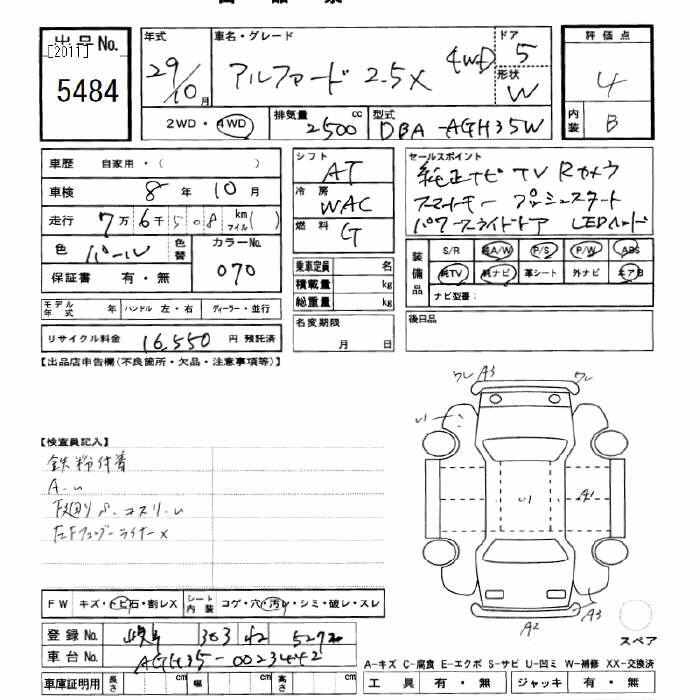 出品No.
[2011]
5484
年式
29/10月
車名・グレード
アルファード 2.5X 4WD
ドア
5
形状
W
評価点
4
内装
B
2WD・4WD
排気量
2500 cc
型式
DBA-AGH35W
車歴 自家用・( )
車検 8年 10月
走行 7万 6千 508 km マイル( )
色 パール 色替
カラーNo.
070
保証書 有・無
モデル年式 年 ハンドル 左・右 ディーラー・並行
リサイクル料金 16,550 円 預託済
シフト
AT
冷房
WAC
燃料
G
乗車定員 名
積載量 kg
総重量 kg
名変期限
月 日
セールスポイント
純正ナビ TV Rカメラ
スマートキー プッシュスタート
パワースライドドア LEDヘッド
装備品
S/R 純A/W P/S P/W ABS
純TV 純ナビ 革シート 外ナビ エアB
ナビ型番:
後日品
【出品店申告欄(不良箇所・欠品・注意事項等)】
【検査員記入】
鉄粉付着
FW キズ・トビ石・割レX
シート内装 コゲ・穴・汚レ・シミ・破レ・スレ
登録No. 岐阜 303
車台No. AGH35-0023442
車庫証明用 長さ cm 幅 cm 高さ cm
ワレ A3 ワレ
A1
A2
A3
スペア
A-キズ C-腐食 E-エクボ S-サビ U-凹ミ W-補修 XX-交換済
工具 有・無 ジャッキ 有・無